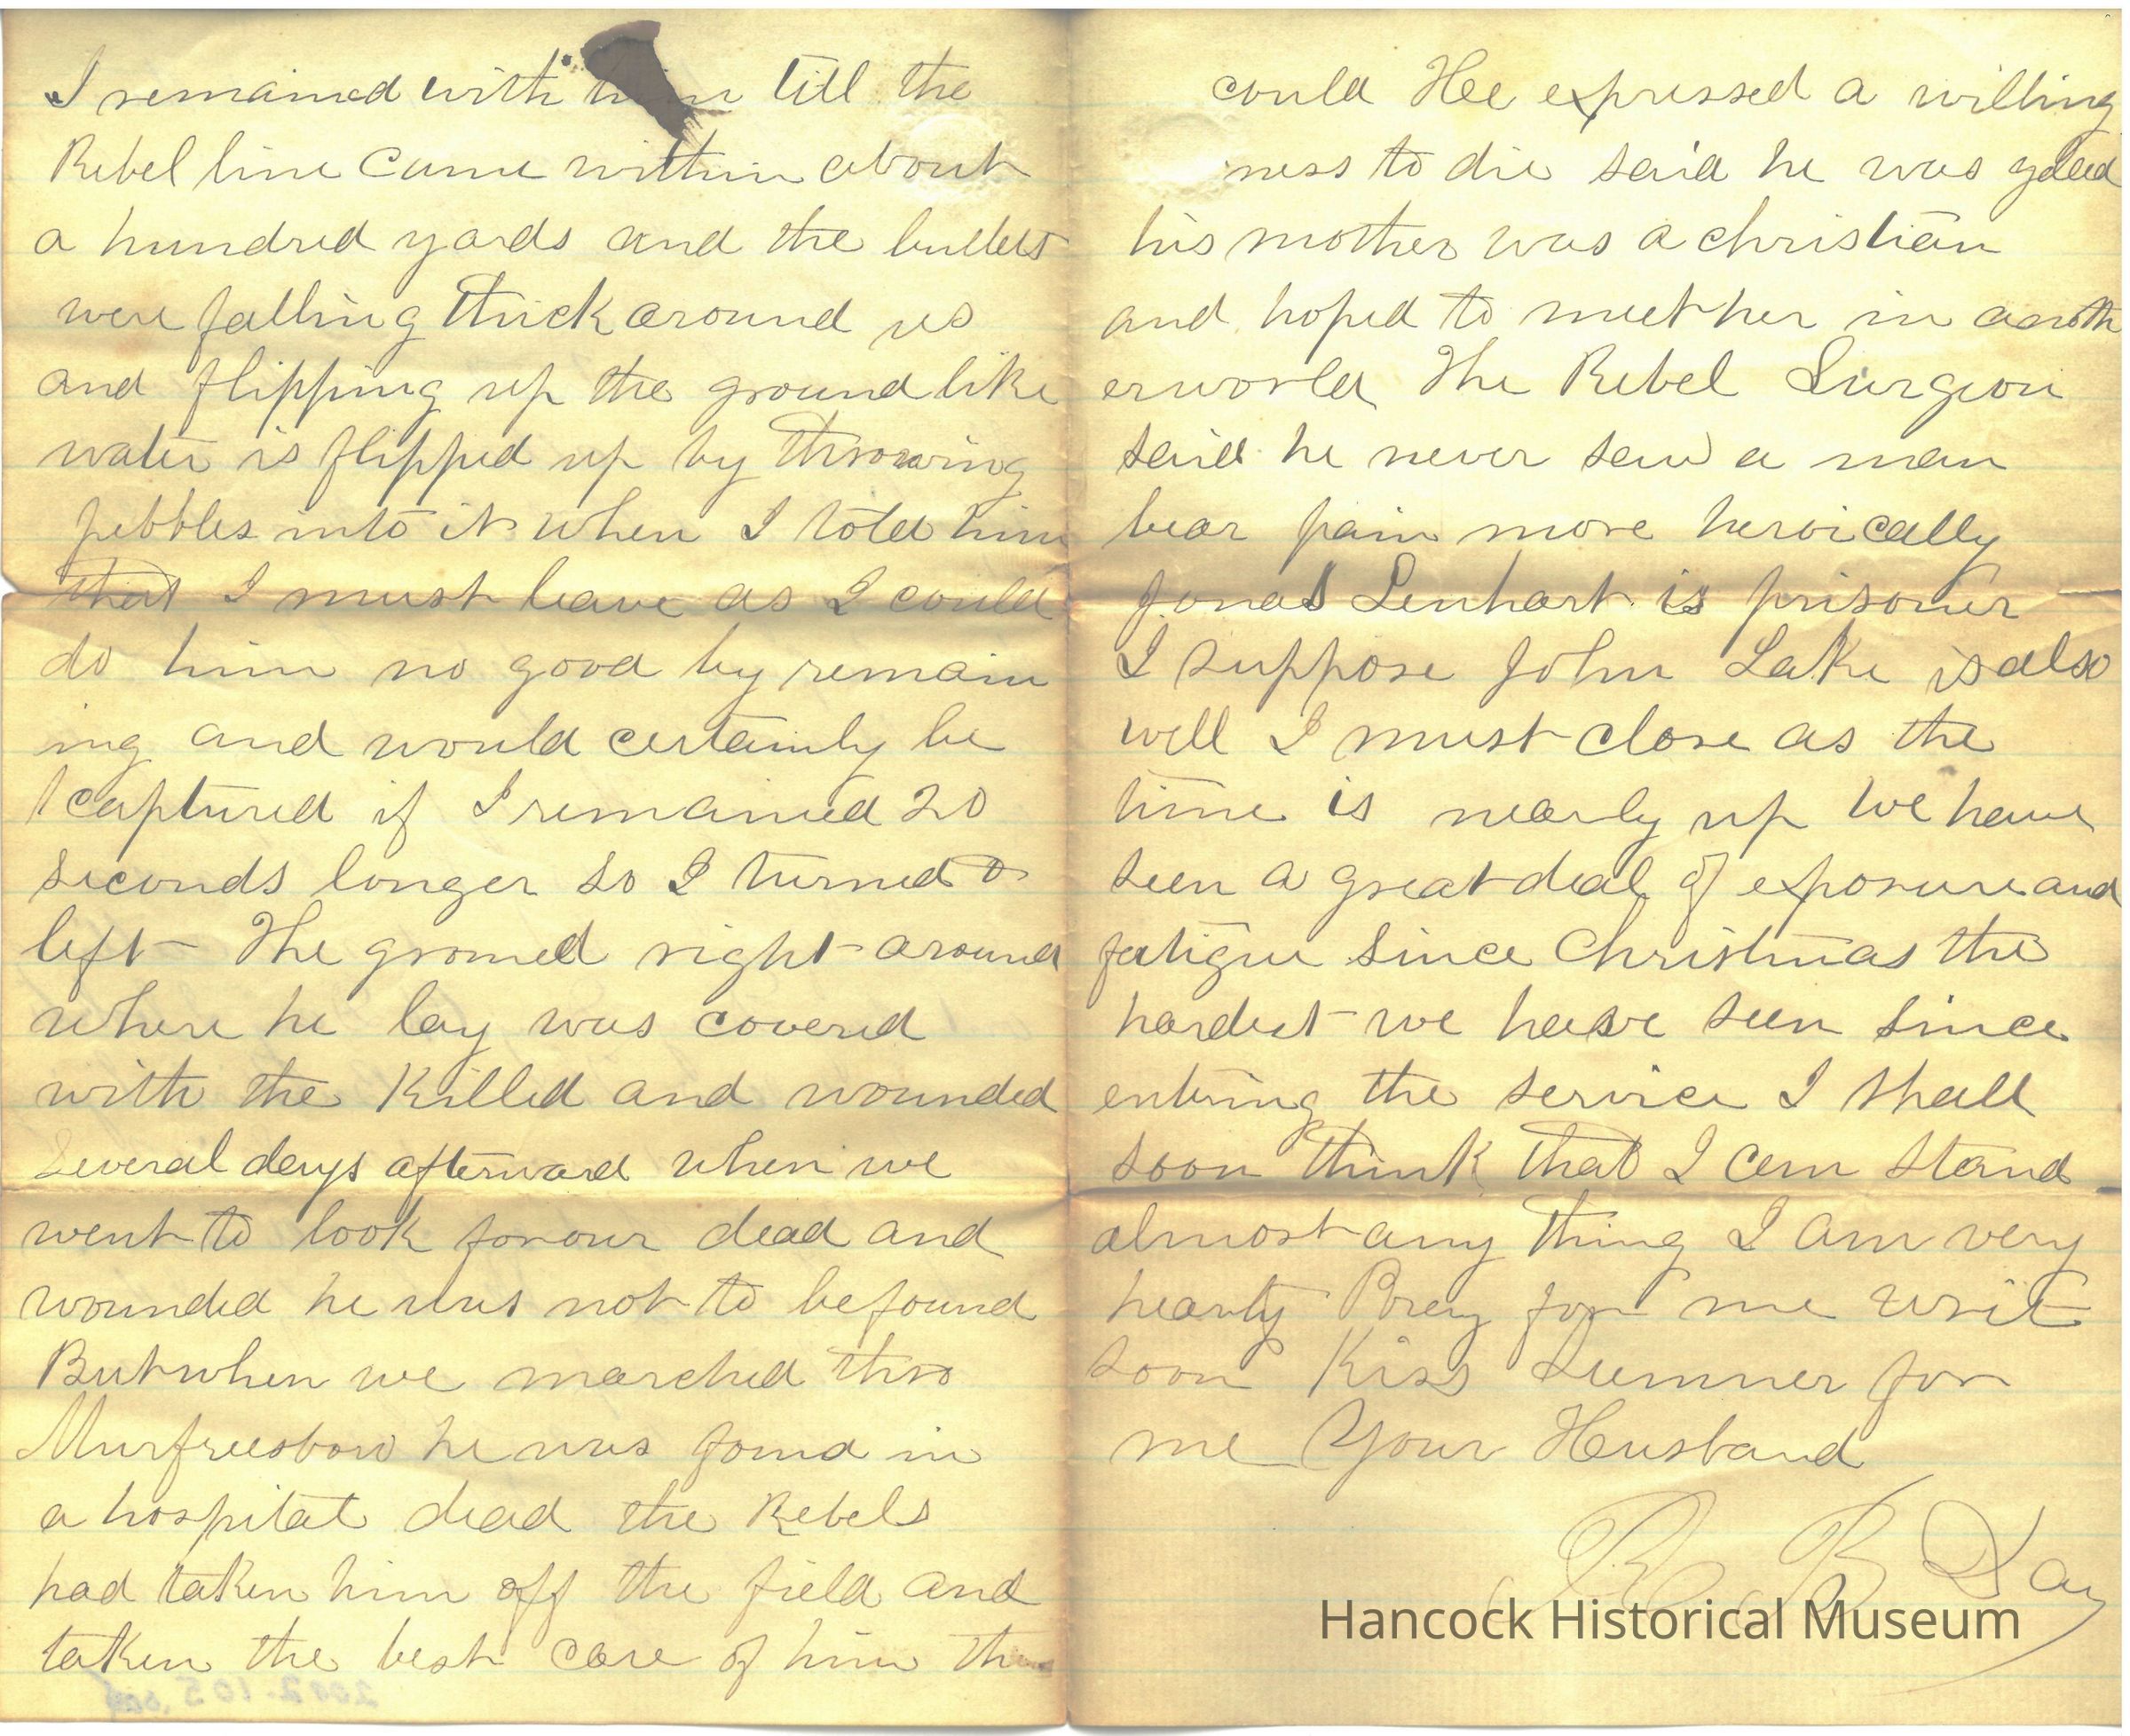 I remained with him till the
Rebel line came within about
a hundred yards and the bullets
were falling thick around us
and flipping up the ground like
water is flipped up by throwing
pebbles into it when I told him
that I must leave as I could
do him no good by remain
ing and would certainly be
captured if I remained 20
seconds longer so I turned &
left The ground right around
where he lay was covered
with the killed and wounded
Several days afterward when we
went to look for our dead and
wounded he was not to be found
But when we marched thro
Murfreesboro he was found in
a hospital dead the Rebels
had taken him off the field and
taken the best care of him
2002.105
could Hee expressed a willing
ness to die said he was glad
his mother was a christian
and hoped to meet her in anoth
er world The Rebel Surgeon
said he never saw a man
bear pain more heroically
Jonas Lenhart is prisoner
I suppose John Lake is also
well I must close as the
time is nearly up We have
seen a great deal of exposure and
fatigue since Christmas the
hardest we have seen since
entering the service I shall
soon think that I can stand
almost any thing I am very
hearty Pray for me writ
soon Kiss Sumner for
me Your Husband
R B Day
Hancock Historical Museum